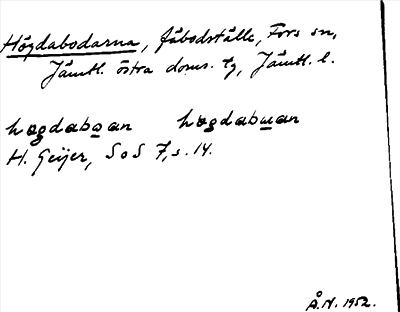 Högdabodarna, fäbodställe, Fors sn,
Jämtl. östra doms. tg, Jämtl. l.
høgdabo̲an høgdabu̲an
H. Geijer, SoS 7, s. 14.
Å.N. 1952.